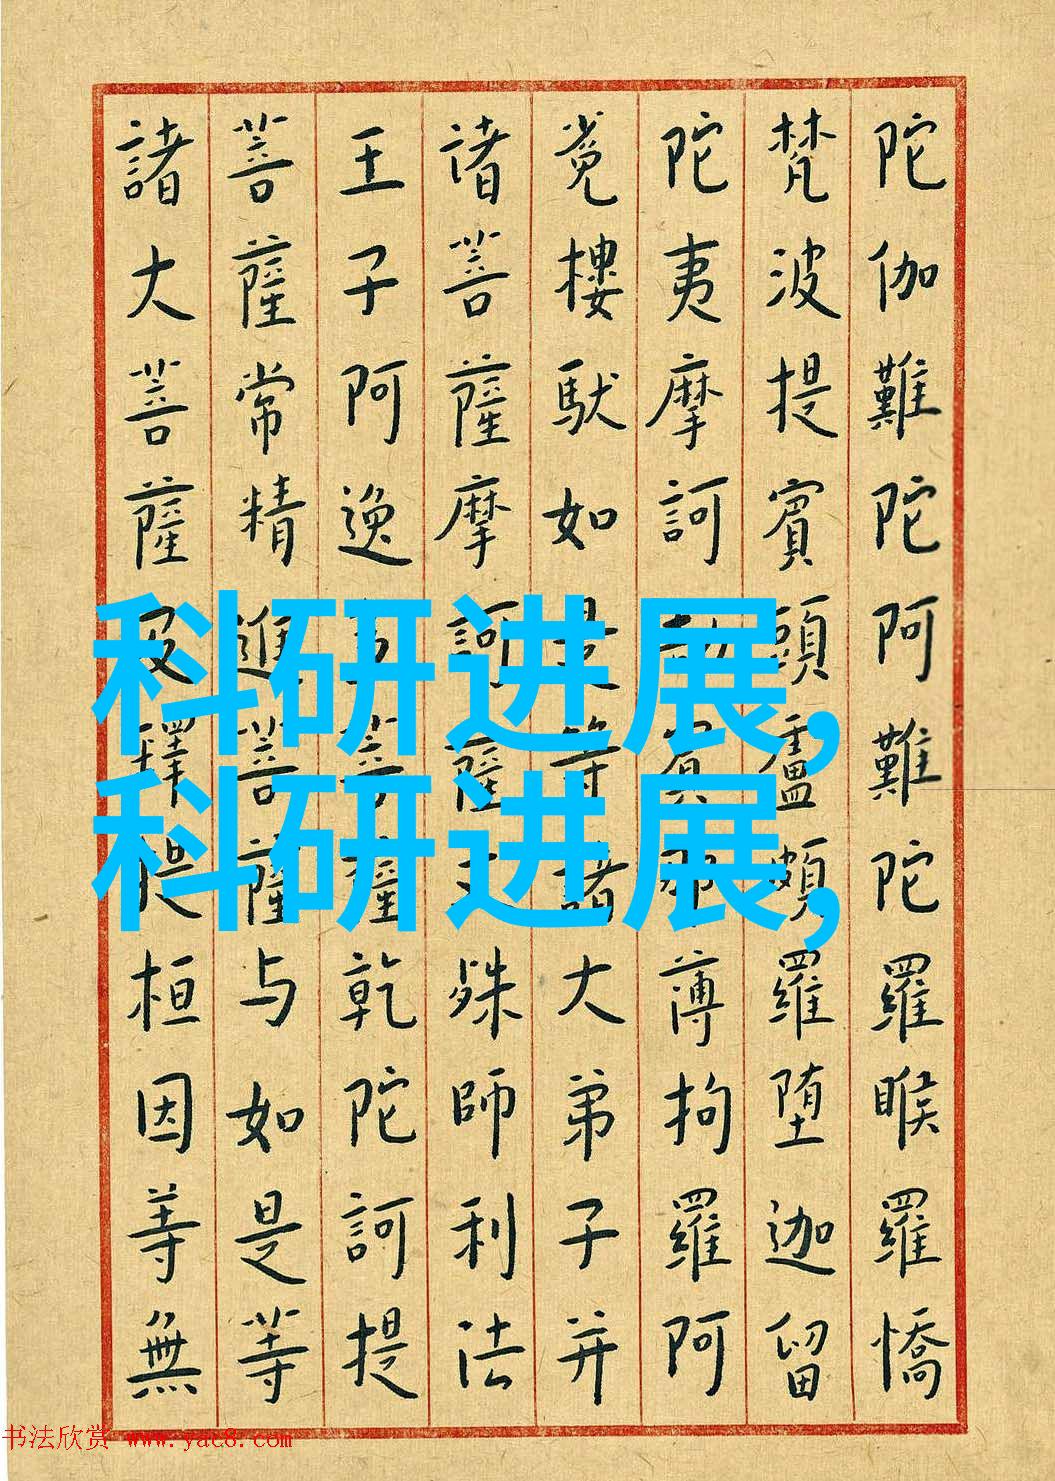 陀伽難陀阿難陀羅睺羅憍
梵波提賓頭盧頗羅堕迦留
陀夷摩訶劫賓那薄拘羅阿
㝹樓馱如是等諸大弟子并
诸菩薩摩訶薩文殊師利法
王子阿逸多菩薩乾陀訶提
菩薩常精進菩薩与如是等
諸大菩薩及釋提桓因等無
科研进展,
科研进展,
书法欣赏 www.yac8.com